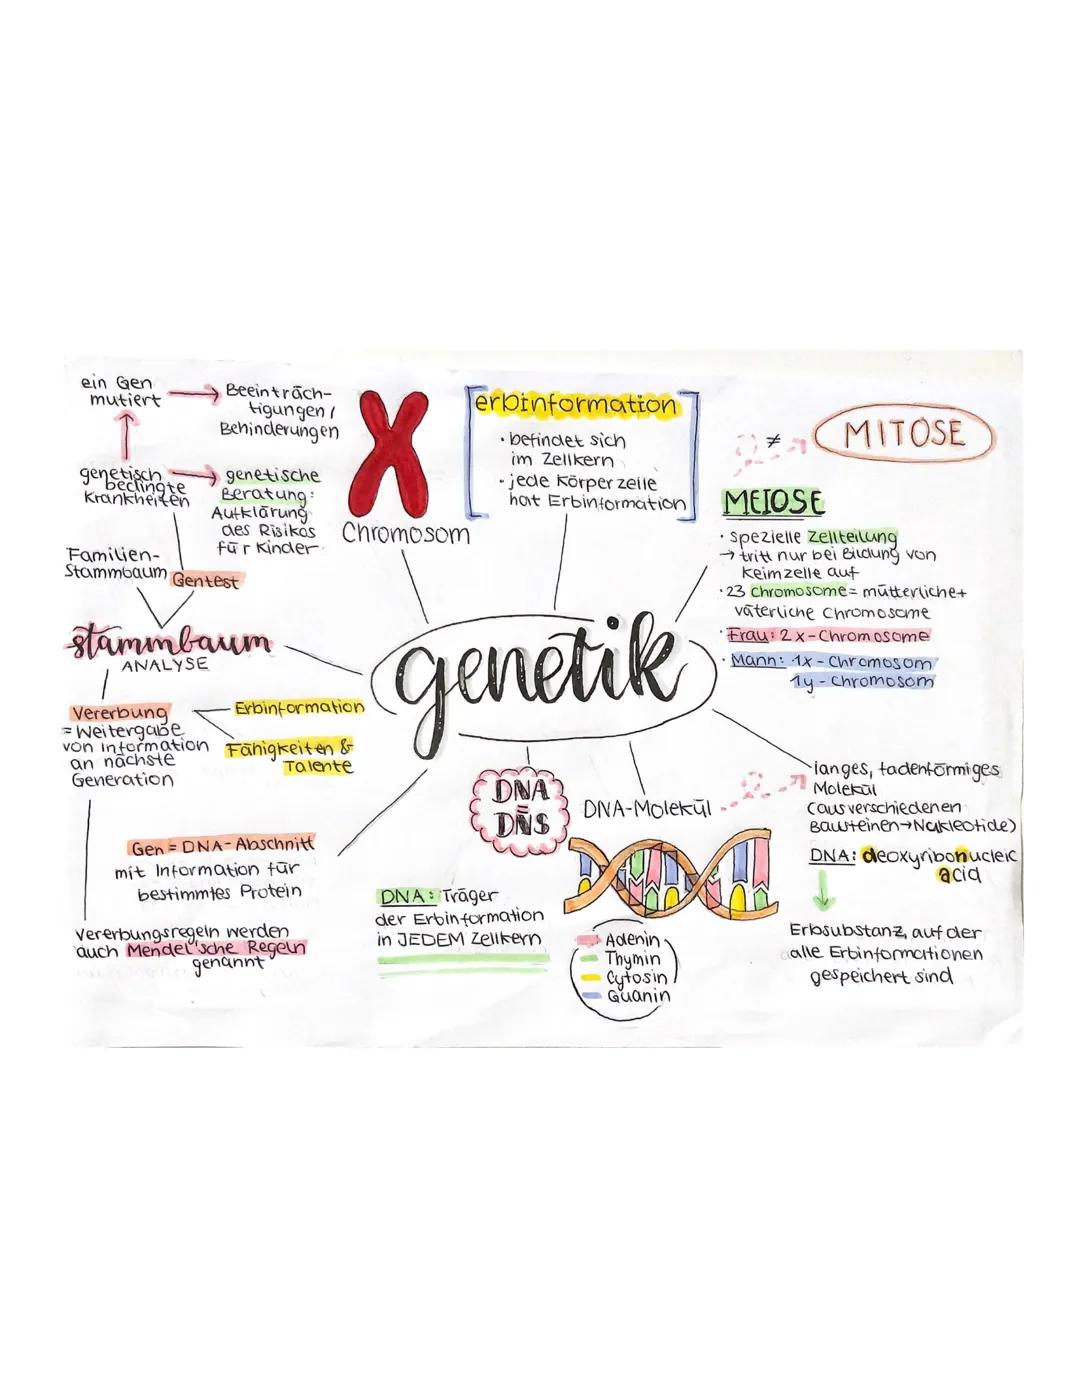 ein Gen
mutiert
Beeinträch-
tigungen/
Behinderungen
genetisch
bedingte
Krankheiten
genetische
Beratung:
Aufklärung
des Risikos
für Kinder
Familien-
Stammbaum
Gentest
stammbaum
ANALYSE
Vererbung
= Weitergabe
von Information
an nächste
Generation
Erbinformation
Fähigkeiten &
Talente
Gen = DNA-Abschnitt
mit Information für
bestimmtes Protein
Vererbungsregeln werden
auch Mendel'sche Regeln
genannt
Chromosom
erbinformation
· befindet sich
im Zellkern
· jede Körperzelle
hat Erbinformation
genetik
≠
MITOSE
MEIOSE
· spezielle Zellteilung
→ tritt nur bei Bildung von
Keimzelle auf
· 23 Chromosome = mütterliche +
väterliche Chromosome
· Frau: 2x-Chromosome
· Mann: 1x-Chromosom
1y-Chromosom
DNA
=
DNS
DNA: Träger
der Erbinformation
in JEDEM Zellkern
DNA-Molekül
Adenin
Thymin
Cytosin
Guanin
langes, fadenförmiges
Molekül
(aus verschiedenen
Bausteinen→Nukleotide)
DNA: deoxyribonucleic
acid
Erbsubstanz, auf der
alle Erbinformationen
gespeichert sind